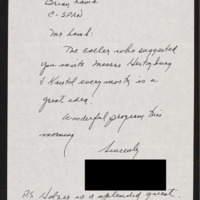 Brian Lamb
C-SPAN
Mr Lamb:
The caller who suggested
you invite Messrs Hertzburg
& Kristol every month is a
great idea.
Wonderful program this
morning
Sincerely
P.S. is a splendid guest.